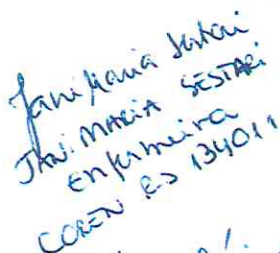 Jani Maria Sestari
JANI MARIA SESTARI
Enfermeira
COREN RS 134011